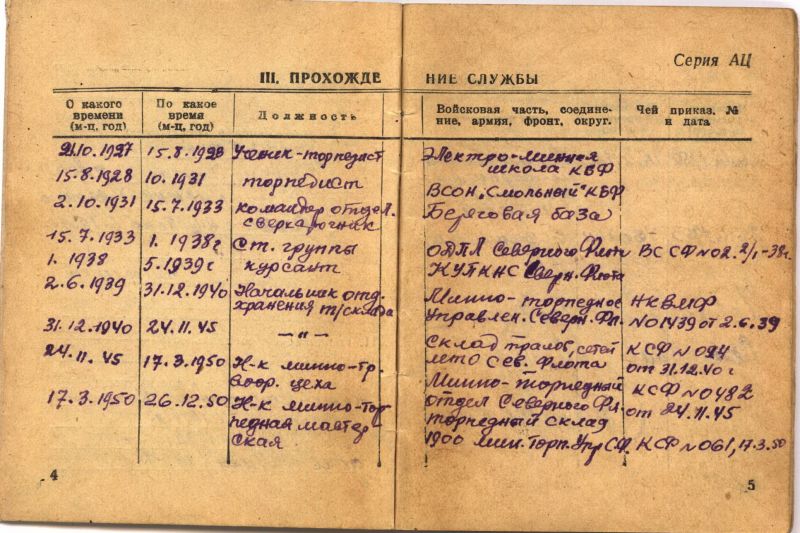 Серия АЦ
III. ПРОХОЖДЕНИЕ СЛУЖБЫ
О какого времени (м-ц, год)
По какое время (м-ц, год)
Должность
Войсковая часть, соединение, армия, фронт, округ.
Чей приказ. № и дата
21.10.1927 15.8.1928 Ученик-торпедист Электро-минная
школа КБФ
15.8.1928 10.1931 торпедист ВСОН „Смольный" КБФ
2.10.1931 15.7.1933 командир отдел. Береговая база
сверхсрочник
15.7.1933 1.1938г Ст. группы ОДПЛ Северного Флота ВС СФ №02. 2/I-38г
1.1938 5.1939г курсант КУПКНС Сверн. Флота
2.6.1939 31.12.1940 Начальник отд. Минно-торпедное НКВМФ
хранения т/склада Управлен. Северн. Фл. №01439 от 2.6.39
31.12.1940 24.11.45 —„— Склад тралов, сетей КСФ №024
лето Сев. Флота от 31.12.40г
24.11.45 17.3.1950 Н-к минно-тр. Минно-торпедный КСФ №0482
воор. цеха отдел Северного Фл. от 24.11.45
17.3.1950 26.12.50 Н-к минно-торпедная мастерская торпедный склад
1900 мин. Торп. Упр СФ. КСФ №061, 17.3.50
4
5